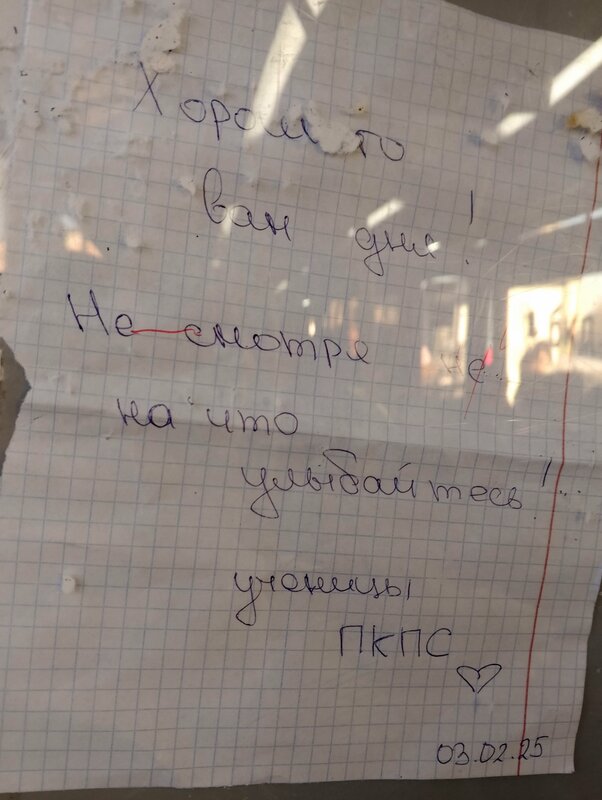 Хорошего
вам дня!
Не смотря не
на что
улыбайтесь!
ученицы
ПКПС
03.02.25